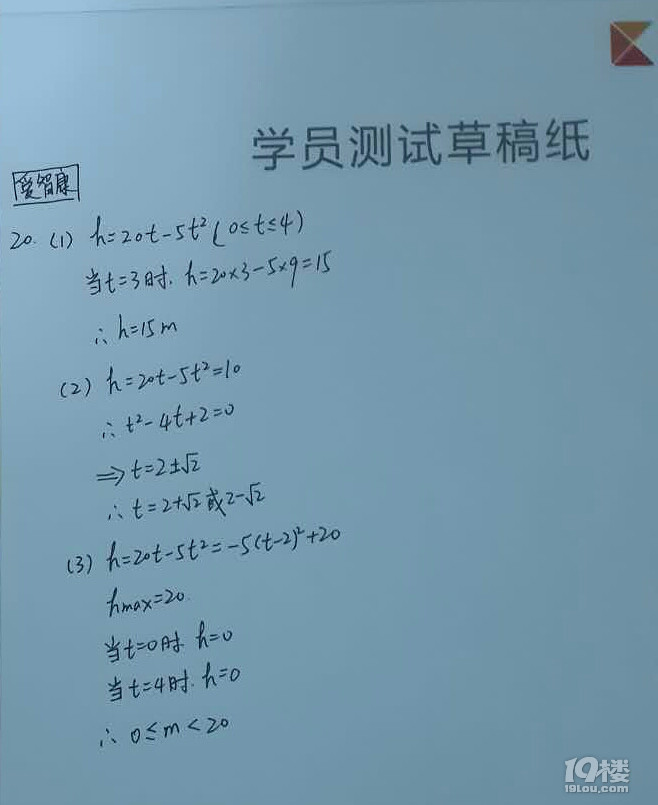 学员测试草稿纸
爱智康
20. (1) h=20t-5t² (0≤t≤4)
当t=3时. h=20×3-5×9=15
∴ h=15m
(2) h=20t-5t²=10
∴ t²-4t+2=0
⇒ t=2±√2
∴ t=2+√2或2-√2
(3) h=20t-5t²=-5(t-2)²+20
hmax=20.
当t=0时 h=0
当t=4时. h=0
∴ 0≤m<20
19楼
19lou.com